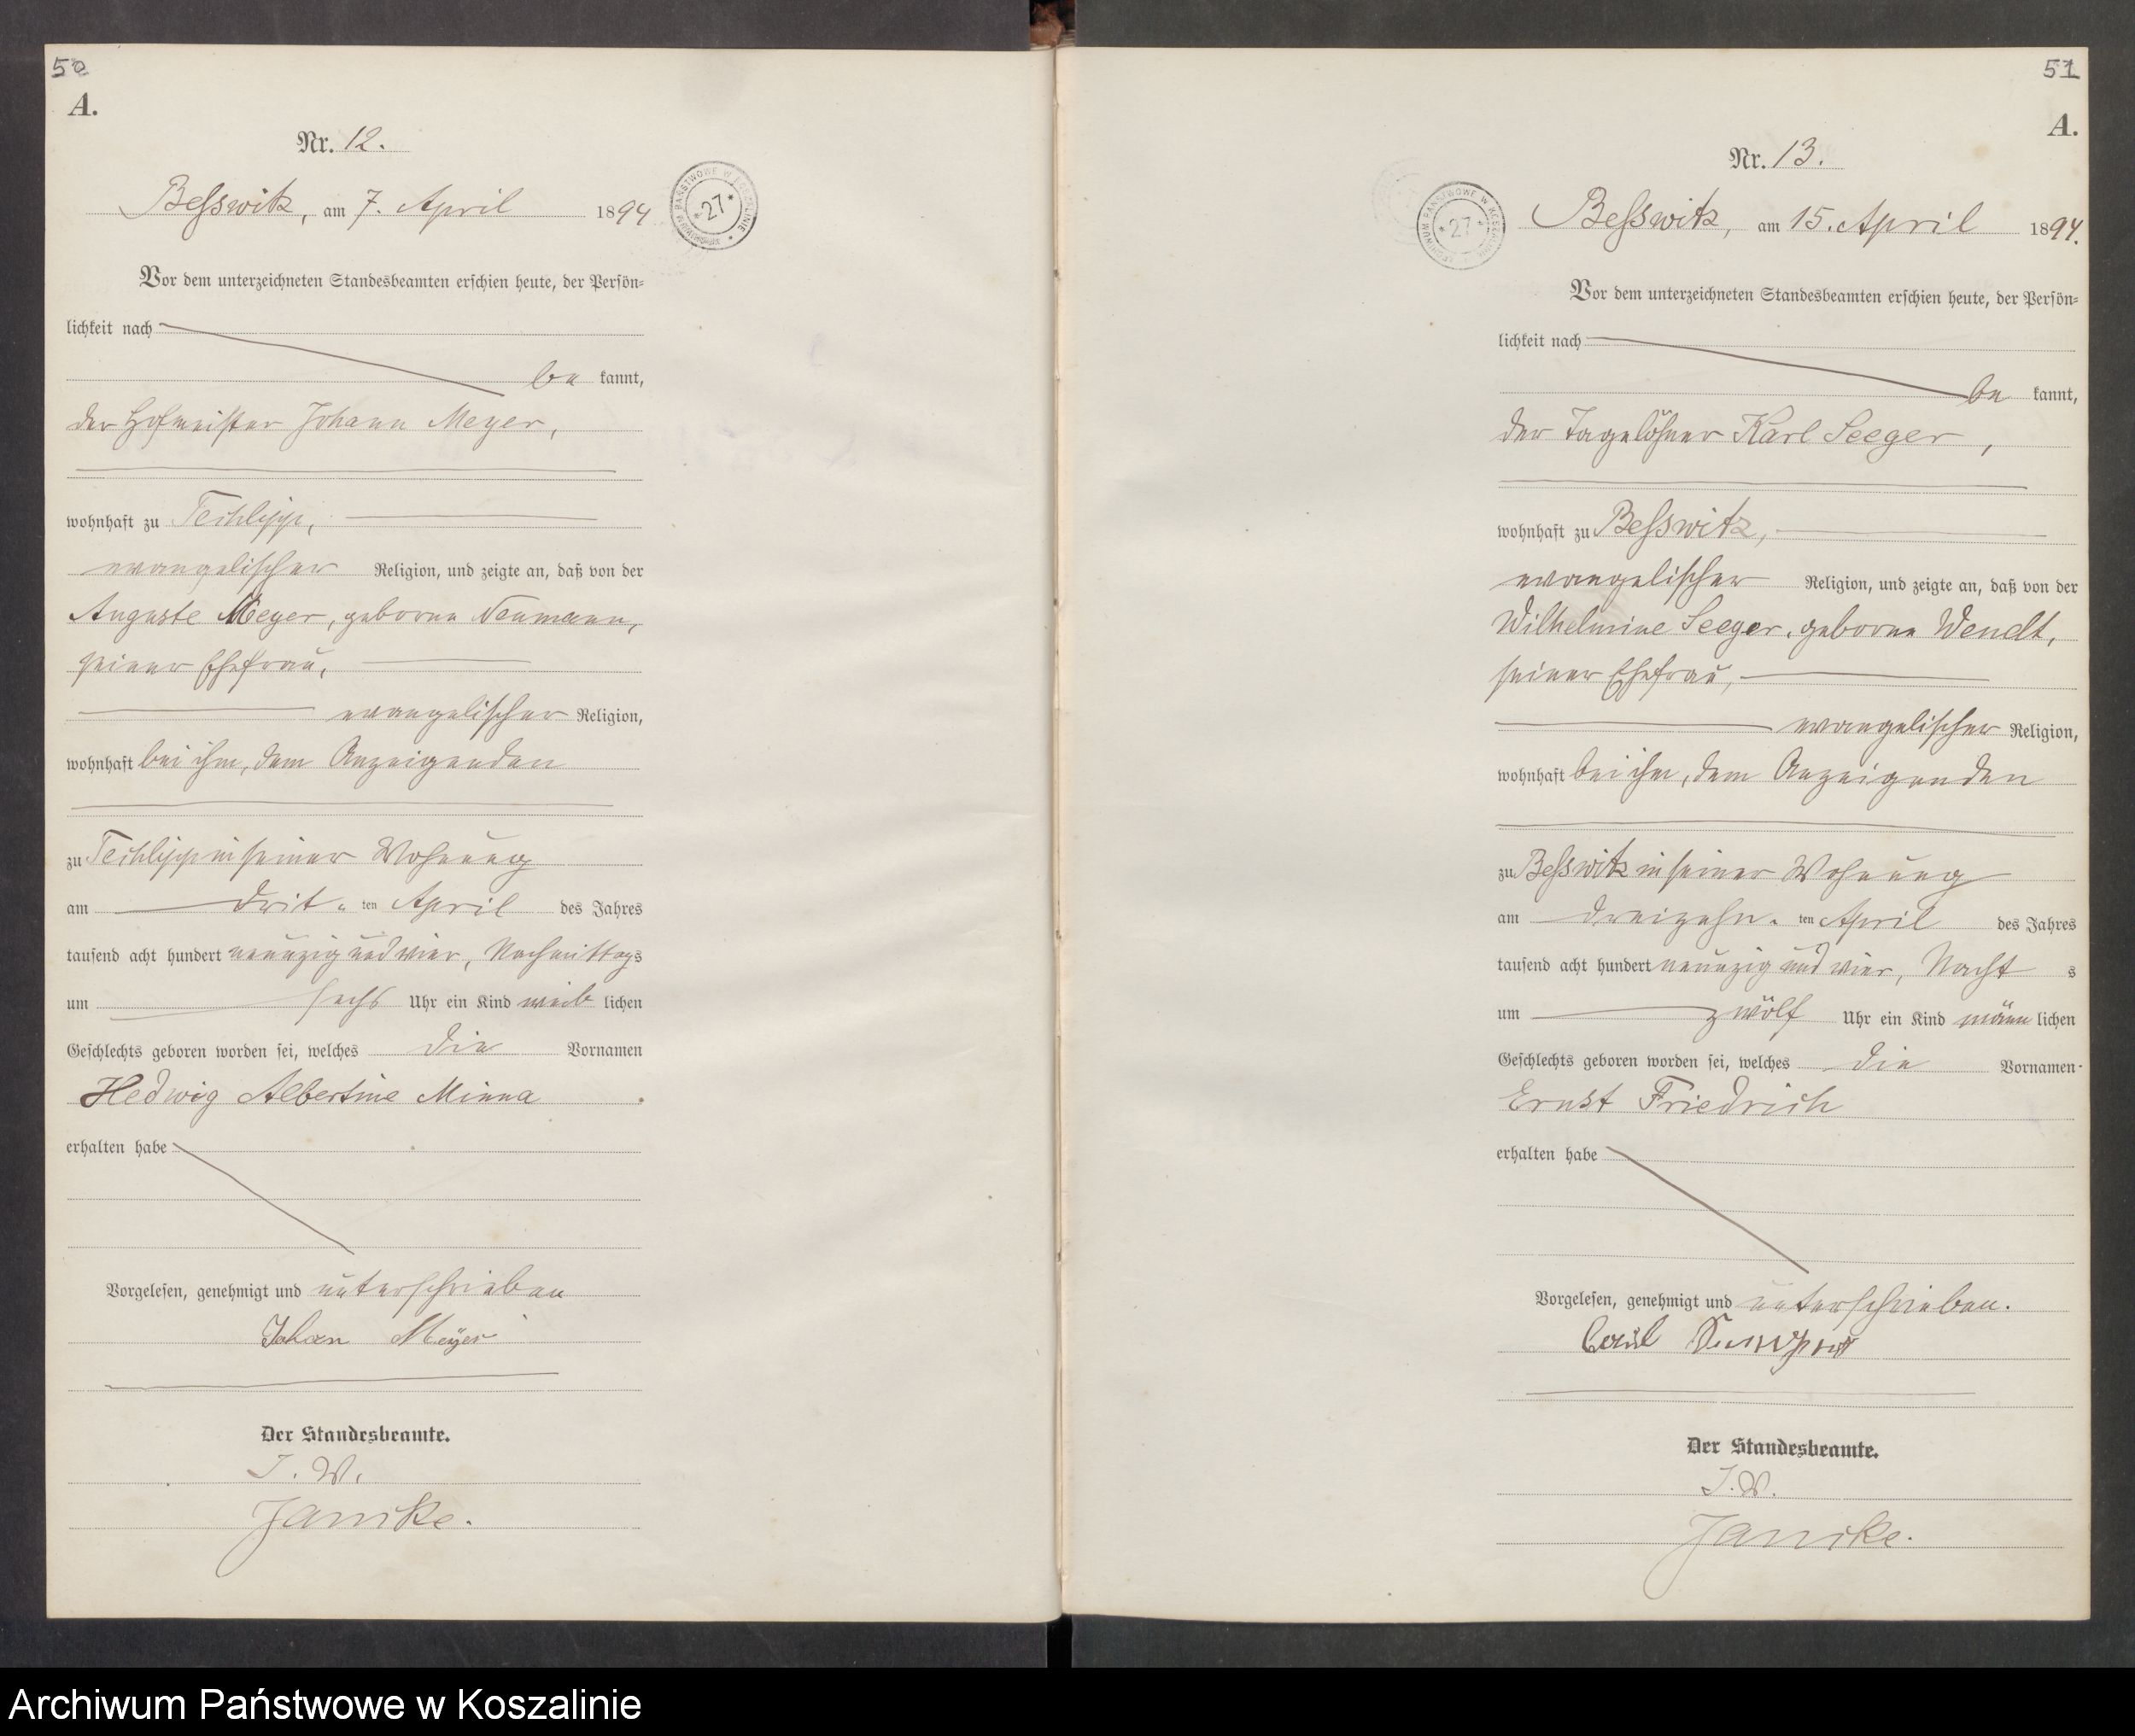 50
A.
Nr. 12.
Beſswitz, am 7. April 1894
ARCHIWUM PAŃSTWOWE W KOSZALINIE
* 27 *
Vor dem unterzeichneten Standesbeamten erſchien heute, der Perſön-
lichkeit nach
be kannt,
der Hofmeiſter Johann Meyer,
wohnhaft zu Techlipp,
evangeliſcher Religion, und zeigte an, daß von der
Auguste Meyer, geborne Neumann,
ſeiner Ehefrau,
evangeliſcher Religion,
wohnhaft bei ihm, dem Anzeigenden
zu Techlipp in ſeiner Wohnung
am drit-ten April des Jahres
tauſend acht hundert neunzig und vier, Nachmittags
um ſechs Uhr ein Kind weib lichen
Geſchlechts geboren worden ſei, welches die Vornamen
Hedwig Albertine Minna
erhalten habe
Vorgeleſen, genehmigt und unterſchrieben
Johan Meyer
Der Standesbeamte.
J. V.
Janike.
51
A.
Nr. 13.
Beſswitz, am 15. April 1894.
ARCHIWUM PAŃSTWOWE W KOSZALINIE
* 27 *
Vor dem unterzeichneten Standesbeamten erſchien heute, der Perſön-
lichkeit nach
be kannt,
der Tagelöhner Karl Seeger,
wohnhaft zu Beſswitz,
evangeliſcher Religion, und zeigte an, daß von der
Wilhelmine Seeger, geborne Wendt,
ſeiner Ehefrau,
evangeliſcher Religion,
wohnhaft bei ihm, dem Anzeigenden
zu Beſswitz in ſeiner Wohnung
am dreizehn-ten April des Jahres
tauſend acht hundert neunzig und vier, Nacht s
um zwölf Uhr ein Kind männ lichen
Geſchlechts geboren worden ſei, welches die Vornamen
Ernst Friedrich
erhalten habe
Vorgeleſen, genehmigt und unterſchrieben.
Carl
Der Standesbeamte.
J. V.
Janike.
Archiwum Państwowe w Koszalinie